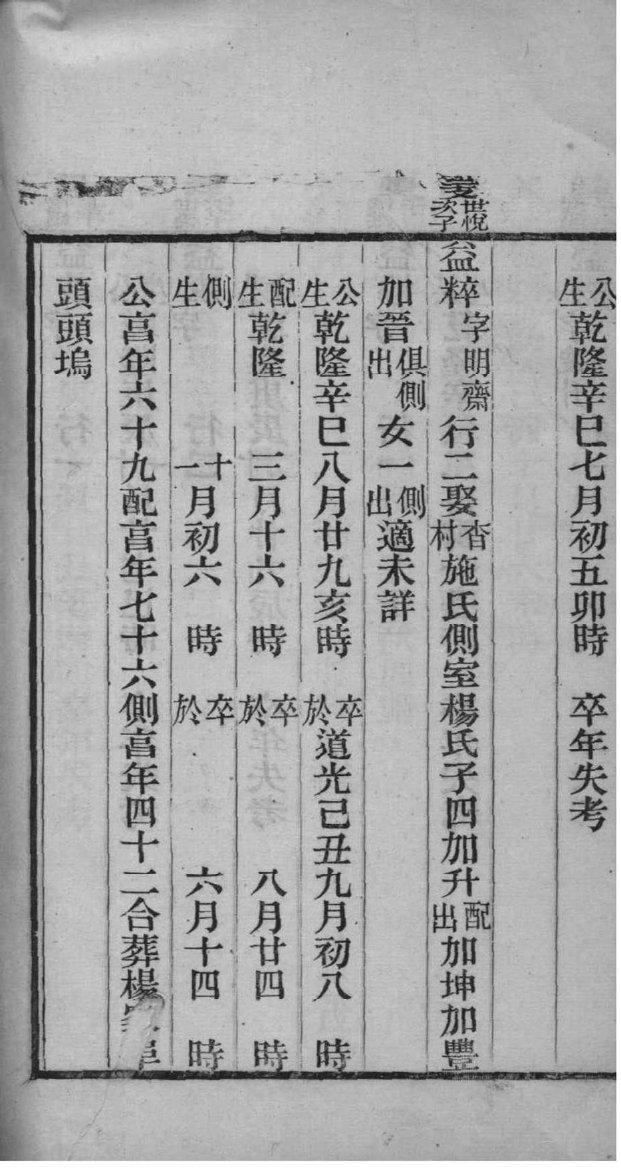 公生乾隆辛巳七月初五卯時 卒年失考
世悅次子
益粹字明齋行二娶杏村施氏側室楊氏子四加升配出加坤加豐
加晉俱側出女一側出適未詳
公生乾隆辛巳八月廿九亥時 卒於道光己丑九月初八 時
配生乾隆 三月十六 時 卒於 八月廿四 時
側生 十一月初六 時 卒於 六月十四 時
公亯年六十九配亯年七十六側亯年四十二合葬楊
頭頭塢